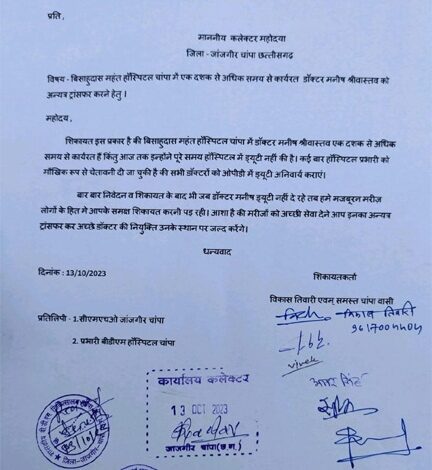 प्रति ,
माननीय कलेक्टर महोदया
जिला - जांजगीर चांपा छत्तीसगढ़
विषय - बिसाहुदास महंत हॉस्पिटल चांपा में एक दशक से अधिक समय से कार्यरत डॉक्टर मनीष श्रीवास्तव को
अन्यत्र ट्रांसफर करने हेतु ।
महोदय,
शिकायत इस प्रकार है की बिसाहुदास महंत हॉस्पिटल चांपा में डॉक्टर मनीष श्रीवास्तव एक दशक से अधिक
समय से कार्यरत हैं किंतु आज तक इन्होने पूरे समय हॉस्पिटल में ड्यूटी नहीं की है। कई बार हॉस्पिटल प्रभारी को
मौखिक रूप से चेतावनी दी जा चुकी है की सभी डॉक्टरों को ओपीडी में ड्यूटी अनिवार्य कराएं।
बार बार निवेदन व शिकायत के बाद भी जब डॉक्टर मनीष ड्यूटी नहीं दे रहे तब हमे मजबूरन मरीज़
लोगों के हित मे आपके समक्ष शिकायत करनी पड़ रही। आशा है की मरीजों को अच्छी सेवा देने आप इनका अन्यत्र
ट्रांसफर कर अच्छे डॉक्टर की नियुक्ति उनके स्थान पर जल्द करेंगे।
धन्यवाद
दिनांक : 13/10/2023
शिकायतकर्ता
विकास तिवारी एवम् समस्त चांपा वासी
प्रतिलिपी - 1.सीएमएचओ जांजगीर चांपा
2. प्रभारी बीडीएम हॉस्पिटल चांपा
vivek
कार्यालय कलेक्टर
13 OCT 2023
जाजगीर चांपा (छ.ग.)